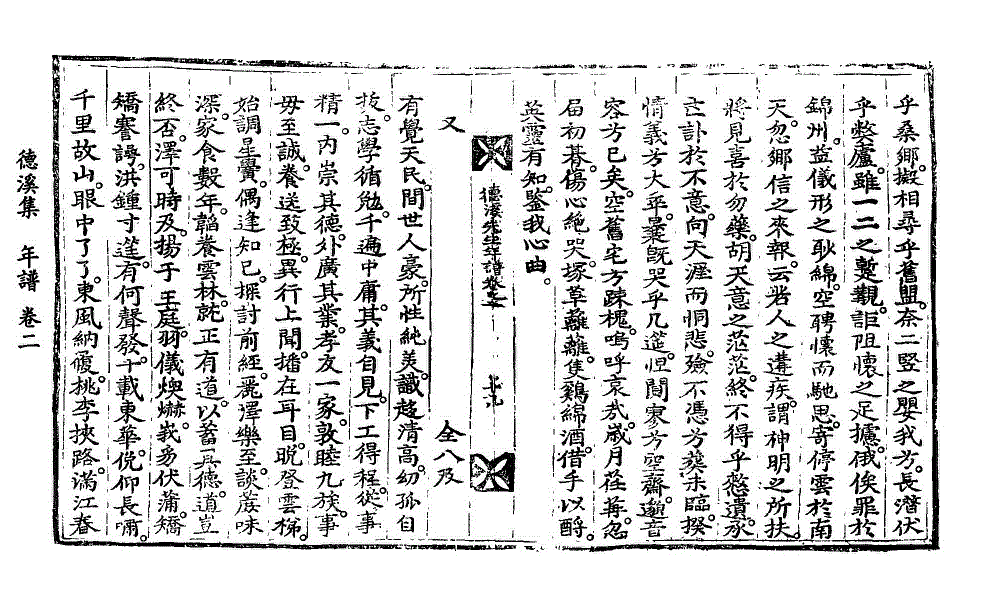 乎桑鄉擬相尋乎舊盟。奈二竪之嬰我芳。長潛伏
乎弊廬。雖一二之蹔覿。詎阻懷之足攄。俄俟罪於
錦州。益儀形之耿綿。空聘懷而馳思。寄停雲於南
天。忽鄉信之來報。云若人之遘疾。謂神明之所扶
將見喜於勿藥。胡天意之茫茫。終不得乎憖遺。承
訃於不意。向天涯而恫悲。殮不憑芳葬未臨。揆
情義芳大乖。曩旣哭乎几筵。悝閴寥芳空齋。邈音
容芳已矣。空舊宅芳疎槐。嗚呼哀哉。歲月荏苒。忽
屆初朞。傷心絶哭。塚草離離。隻鷄綿酒。借手以酹。
英靈有知。鑒我心曲。
德溪先生年譜卷之
又 全八及
有覺天民。間世人豪。所性純美。識趍淸高。幼孤自
拔。志學循勉。千遍中庸。其義自見。下工得程。從事
精一。內崇其德。外廣其業。孝友一家。敦睦九族。事
毋至誠。養送致極。異行上聞。播在耳目。晩登雲梯。
始調星鬢。偶逢知己。探討前經。麗澤樂至。談蔗味
深。家食數年。韜養雲林。就正有道。以蓄德。道豈
終否。澤可時及。揚于王庭。羽儀煥爀。峩豸伏蒲。矯
矯謇諤。洪鍾寸莛。有何聲發。千載東華。俛仰長嘯。
千里故山。眼中了了。東風納履。桃李挾路。滿江春
德溪集 年譜 卷二